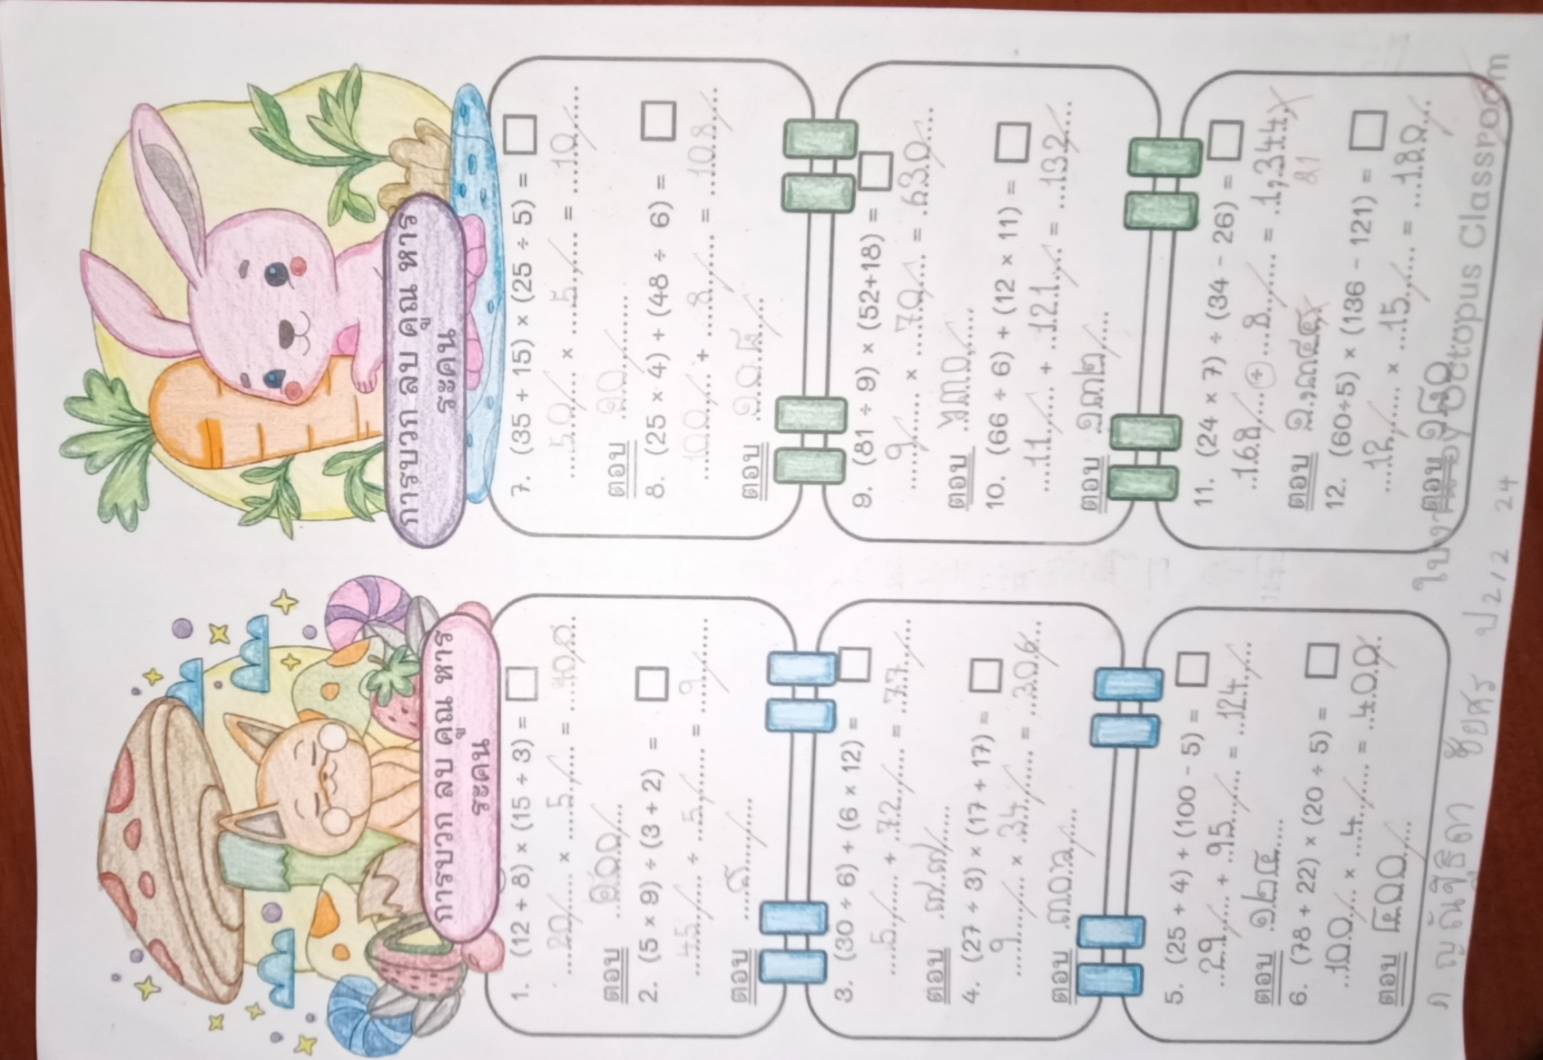 การบวก ลบ คูณ หาร
ระคน
1. (12 + 8) × (15 ÷ 3) =
20 × 5 = 100
ตอบ ๑๐๐
2. (5 × 9) ÷ (3 + 2) =
45 ÷ 5 = 9
ตอบ ๙
3. (30 ÷ 6) + (6 × 12) =
5 + 72 = 77
ตอบ ๗๗
4. (27 ÷ 3) × (17 + 17) =
9 × 34 = 306
ตอบ ๓๐๖
5. (25 + 4) + (100 - 5) =
29 + 95 = 124
ตอบ ๑๒๔
6. (78 + 22) × (20 ÷ 5) =
100 × 4 = 400
ตอบ ๔๐๐
การบวก ลบ คูณ หาร
ระคน
7. (35 + 15) × (25 ÷ 5) =
50 × 5 = 10
ตอบ ๑๐
8. (25 × 4) + (48 ÷ 6) =
100 + 8 = 108
ตอบ ๑๐๘
9. (81 ÷ 9) × (52+18) =
9 × 70 = 630
ตอบ ๖๓๐
10. (66 ÷ 6) + (12 × 11) =
11 + 121 = 132
ตอบ ๑๓๒
11. (24 × 7) ÷ (34 - 26) =
168 ÷ 8 = 1,344
21
ตอบ ๑,๓๔๔
12. (60÷5) × (136 - 121) =
12 × 15 = 180
ตอบ ๑๘๐
ใบงานby Octopus Classroom
ป 2/2 24